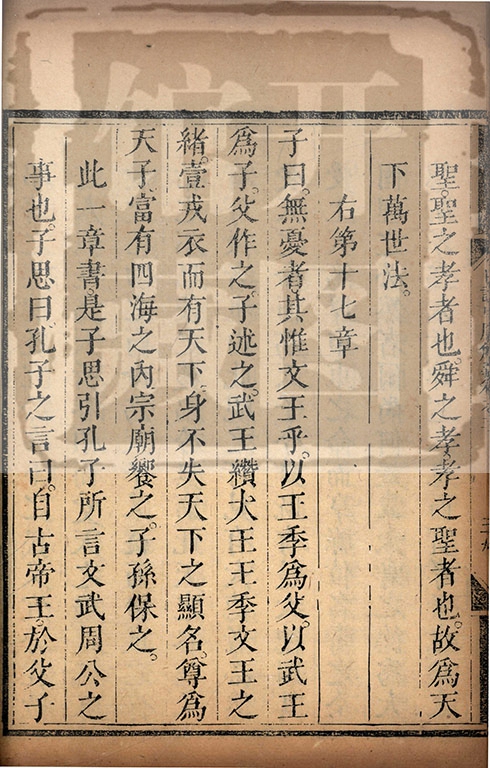 聖聖之孝者也。舜之孝孝之聖者也。故爲天
下萬世法。
右第十七章
子曰。無憂者。其惟文王乎。以王季爲父。以武王
爲子。父作之。子述之。武王纘大王王季文王之
緒。壹戎衣而有天下。身不失天下之顯名。尊爲
天子。富有四海之內。宗廟饗之。子孫保之。
此一章書是子思引孔子所言文武周公之
事也。子思曰。孔子之言曰。自古帝王。於父子